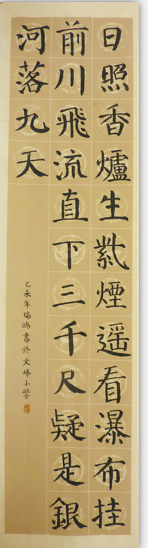 日照香爐生紫煙遥看瀑布挂
前川飛流直下三千尺疑是銀
河落九天
乙未年瑞鴻書於文峰小學